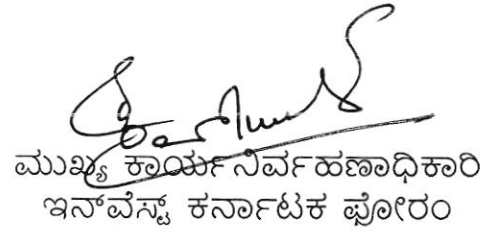 ಮುಖ್ಯ ಕಾರ್ಯನಿರ್ವಹಣಾಧಿಕಾರಿ
ಇನ್‌ವೆಸ್ಟ್ ಕರ್ನಾಟಕ ಫೋರಂ